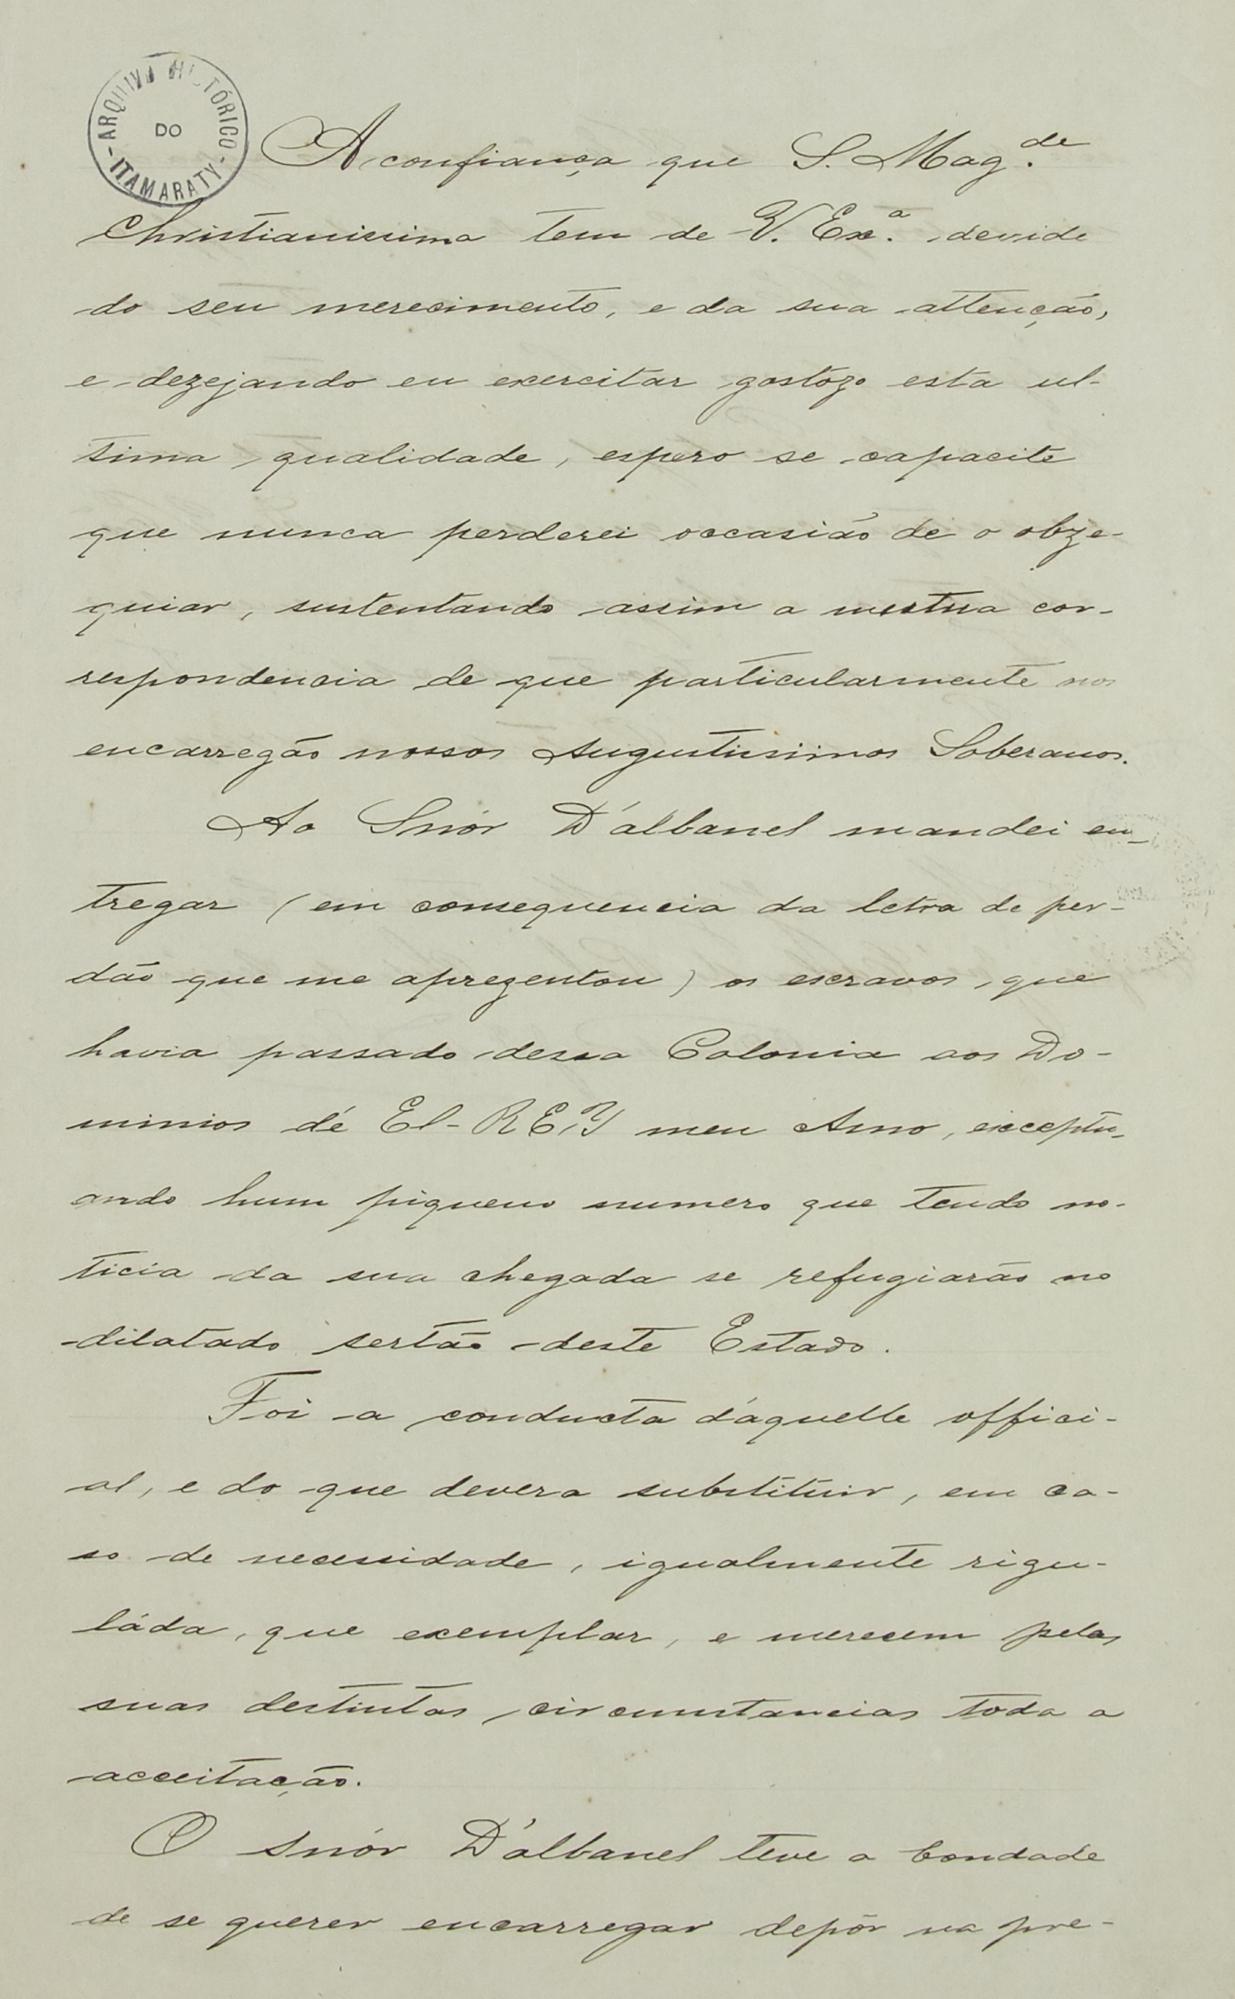 ARQUIVO HISTÓRICO
DO
ITAMARATY
A confiança que S. Mag.de
Christianissima tem de V. Ex.a devide
do seu merecimento, e da sua attenção,
e dezejando eu exercitar gostozo esta ul-
tima qualidade, espero se capacite
que nunca perderei occasião de o obze-
quiar, sustentando assim a mutua cor-
respondencia de que particularmente nos
encarregão nossos Augustissimos Soberanos.
Ao Snór D'albanel mandei en-
tregar (em consequencia da letra de per-
dão que me aprezentou) os escravos, que
havia passado dessa Colonia aos Do-
minios dé El-REY meu Amo, exceptu-
ando hum piqueno numero que tendo no-
ticia da sua chegada se refugiarão no
dilatado sertão deste Estado.
Foi a conducta d'aquelle offici-
al, e do que devera substituir, em ca-
so de necessidade, igualmente rigu-
láda, que exemplar, e merecem pelas
suas destintas circumstancias toda a
acceitação.
O Snór D'albanel teve a bondade
de se querer encarregar depôr na pre-